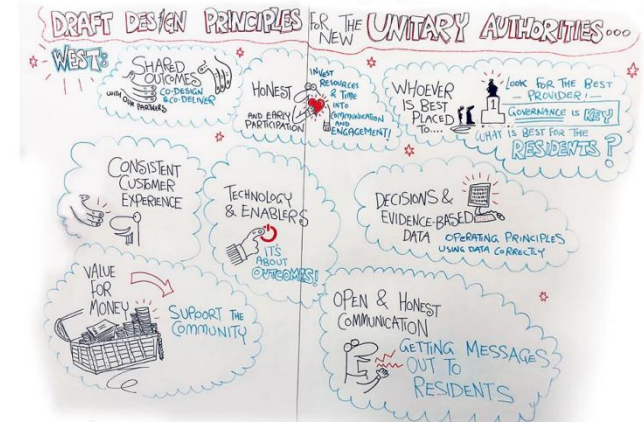 DRAFT DESIGN PRINCIPLES FOR THE NEW UNITARY AUTHORITIES...
WEST:
SHARED
OUTCOMES
CO-DESIGN
& CO-DELIVER
WITH OUR PARTNERS
HONEST
AND EARLY
PARTICIPATION
INVEST
RESOURCES
& TIME
INTO
COMMUNICATION
AND
ENGAGEMENT!
WHOEVER
IS BEST
PLACED
TO....
LOOK FOR THE BEST
PROVIDER!
GOVERNANCE IS KEY
WHAT IS BEST FOR THE
RESIDENTS?
CONSISTENT
CUSTOMER
EXPERIENCE
TECHNOLOGY
& ENABLERS
IT'S
ABOUT
OUTCOMES!
DECISIONS &
EVIDENCE-BASED
DATA
OPERATING PRINCIPLES
USING DATA CORRECTLY
VALUE
FOR
MONEY
SUPPORT THE
COMMUNITY
OPEN & HONEST
COMMUNICATION
GETTING MESSAGES
OUT TO
RESIDENTS